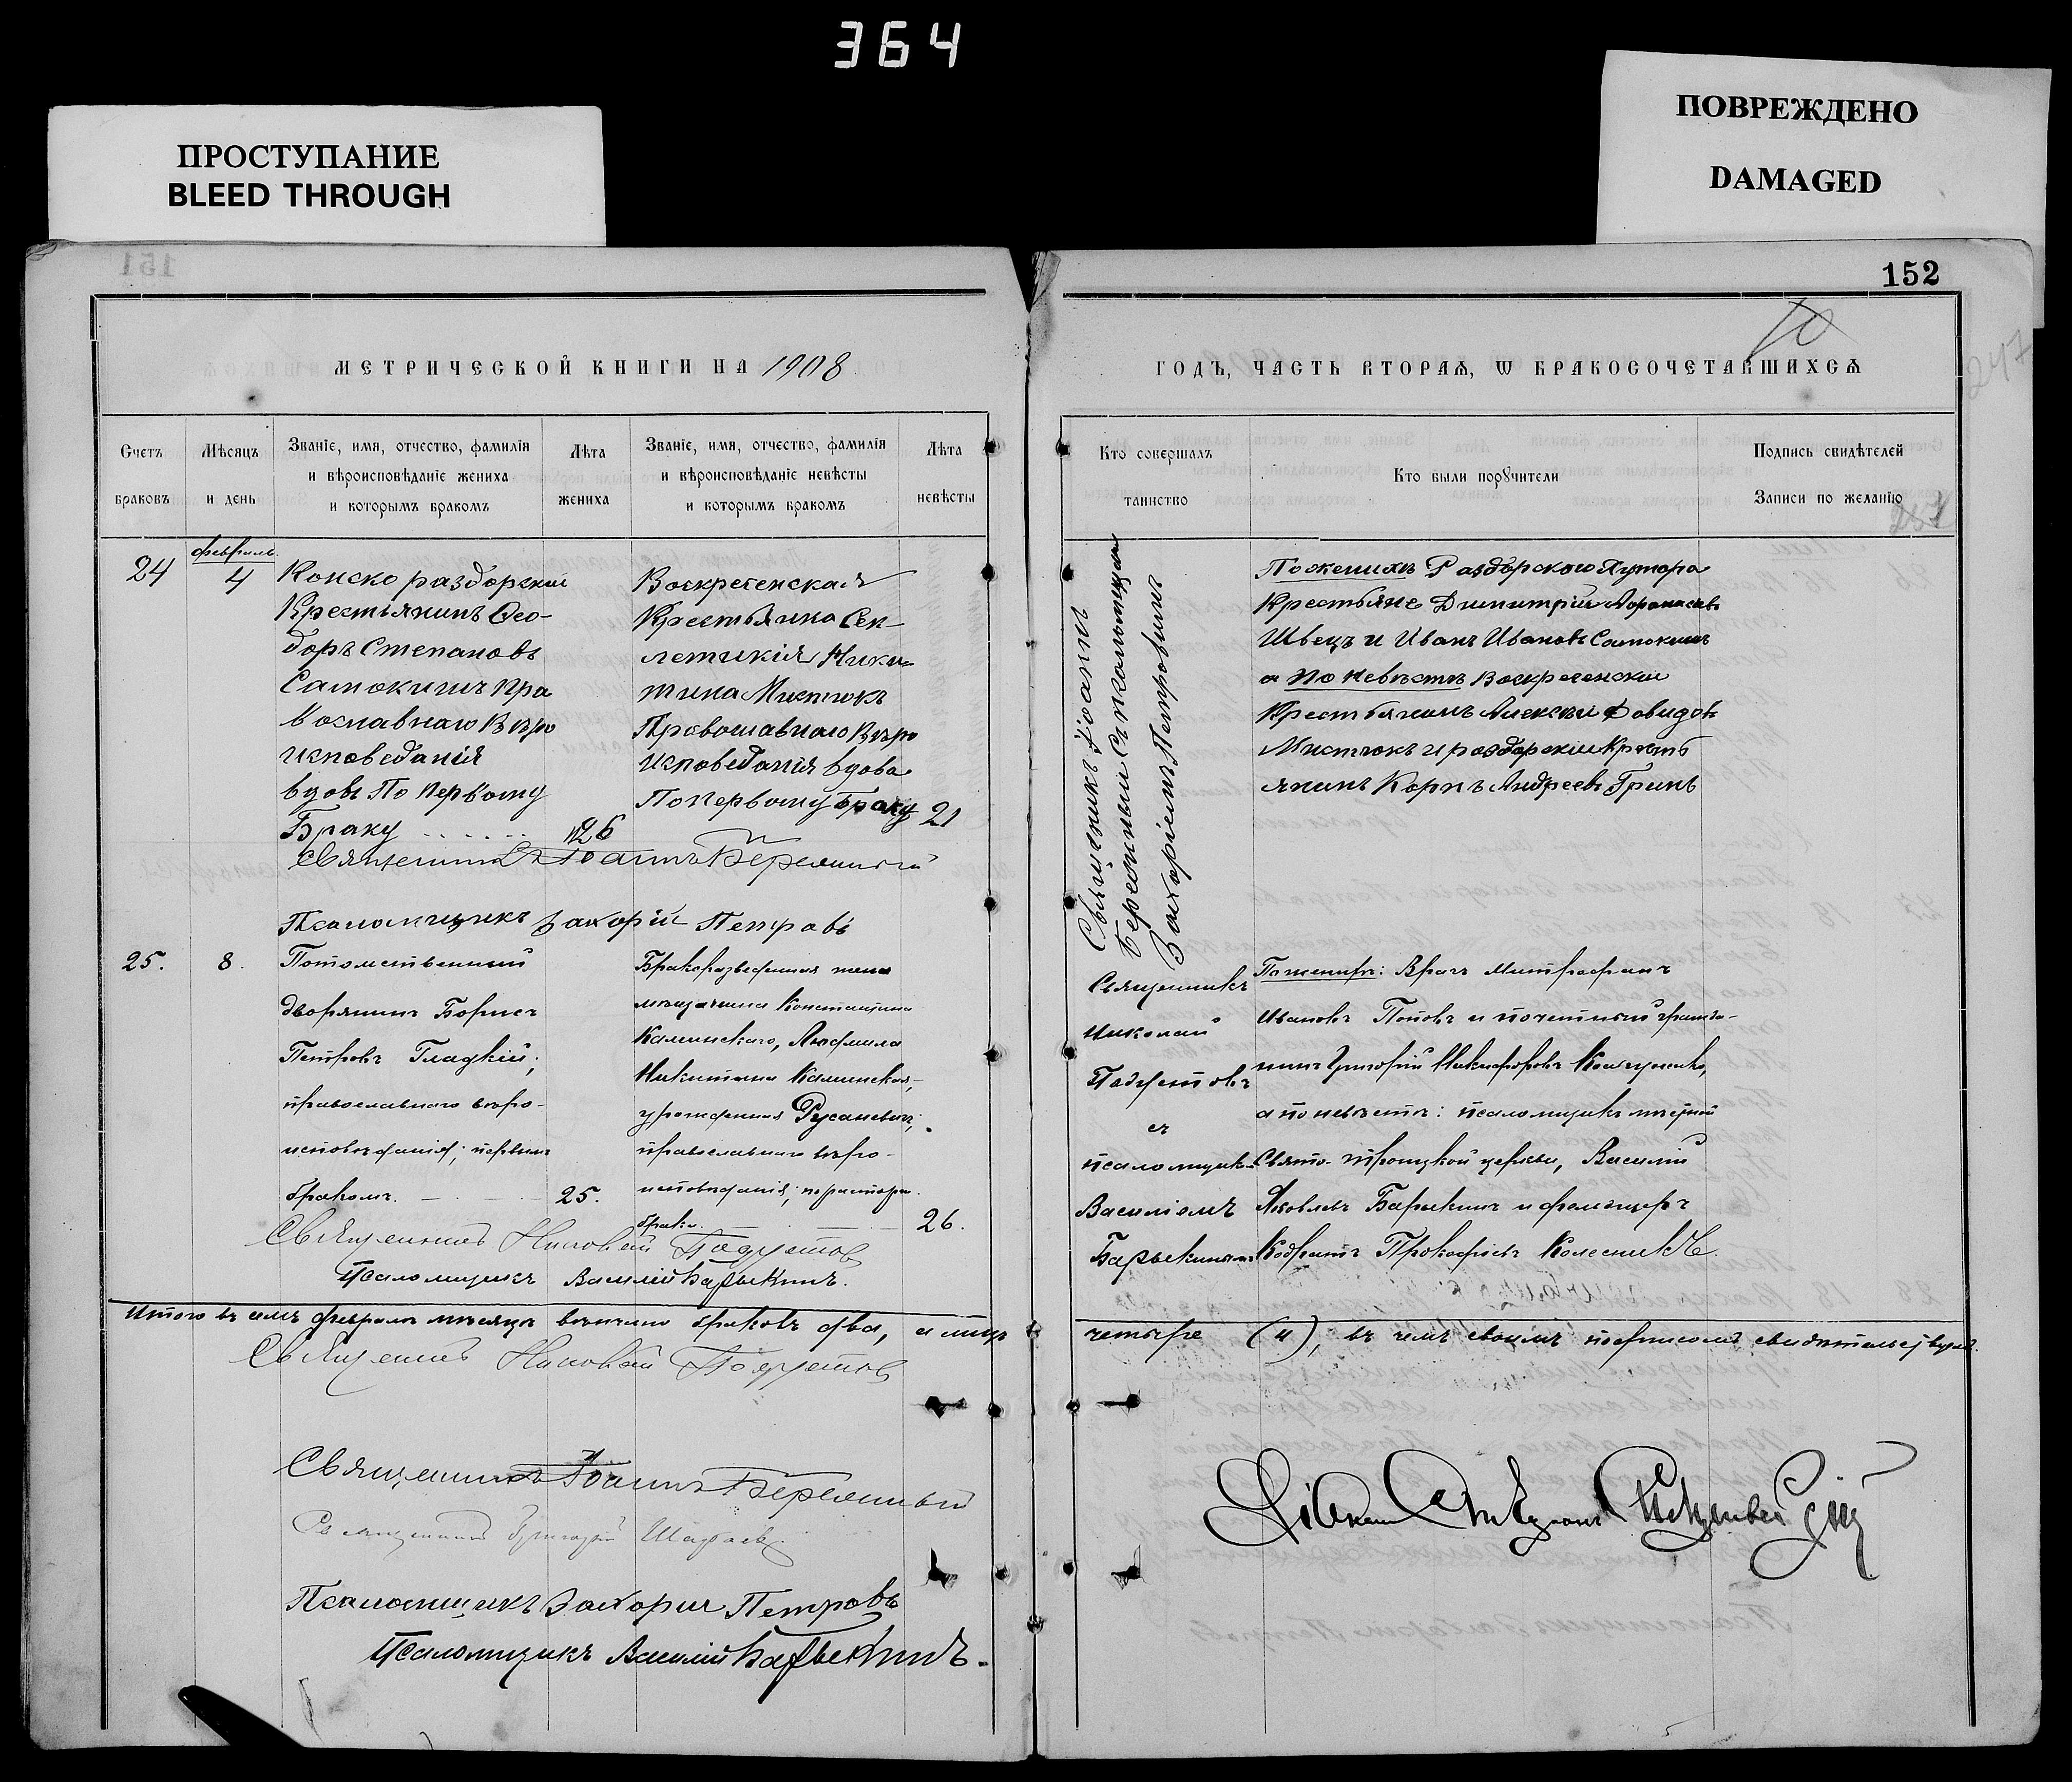 364
ПРОСТУПАНИЕ
BLEED THROUGH
ПОВРЕЖДЕНО
DAMAGED
152
МЕТРИЧЕСКОЙ КНИГИ НА 1908
ГОДЪ, ЧАСТЬ ВТОРАѦ, Ѡ БРАКОСОЧЕТАВШИХСѦ
Счетъ браковъ
Мѣсяцъ и день
Званіе, имя, отчество, фамилія
и вѣроисповѣданіе жениха
и которымъ бракомъ
Лѣта жениха
Званіе, имя, отчество, фамилія
и вѣроисповѣданіе невѣсты
и которымъ бракомъ
Лѣта невѣсты
Кто совершалъ таинство
Кто были порꙋчители
Подпись свидѣтелей
Записи по желанію
24
февраль
4
Конско раздорский
Крестьянинъ Ѳео-
доръ Степановъ
Самокишъ Пра
вославнаго Вѣро
исповеданія
вдовъ По Первому
Браку
26
Воскресенская
Крестьянка Сек-
летикія Ники
тина Мистюкъ
Православнаго Вѣро
исповеданія вдова
По первому браку 21
Священникъ Іоаннъ Бережный
Псаломщикъ Захорій Петровъ
Священникъ Іоаннъ
Бережный Съ псаломщикомъ
Захоріемъ Петровымъ
По женихѣ Раздорскаго Хутора
Крестьяне Димитрій Афонасьевъ
Швецъ и Иванъ Ивановъ Самокишъ
а по невѣстѣ Воскресенскій
Крестьянинъ Алексѣй Давидовъ
Мистюкъ и раздорскій Крестъ
янинъ Корнъ Андреевъ Гринь
25.
8.
Потомственный
дворянинъ Борисъ
Петровъ Гладкій;
православнаго вѣро-
исповѣданія; первымъ
бракомъ.
25.
Бракоразведенная жена
мѣщанина Константина
Калинскаго, Людмила
Никитина Калинская,
урожденная Русаневичъ;
православнаго вѣро-
исповѣданія; по расторж.
брака.
26.
Священникъ Николай
съ
псаломщикомъ
Василіемъ
Барыкинымъ
По женихѣ: Врачъ Митрофанъ
Ивановъ Поповъ и почетный гражда-
нинъ Григорій Никифоровъ
а по невѣстѣ: псаломщикъ мѣстной
Свято-Троицкой церкви, Василій
Яковлевъ Барыкинъ и фельдшеръ
Кодратъ Прокофіевъ Колесникъ.
Священникъ Николай
Псаломщикъ Василій Барыкинъ.
Итого въ семъ февралѣ мѣсяцѣ вѣнчано браковъ два, а лицъ
четыре (4), въ чемъ своимъ подписомъ свидѣтельствуемъ.
Священникъ Николай
Священникъ Іоаннъ Бережный
Псаломщикъ Захорій Петровъ
Псаломщикъ Василій Барыкинъ.